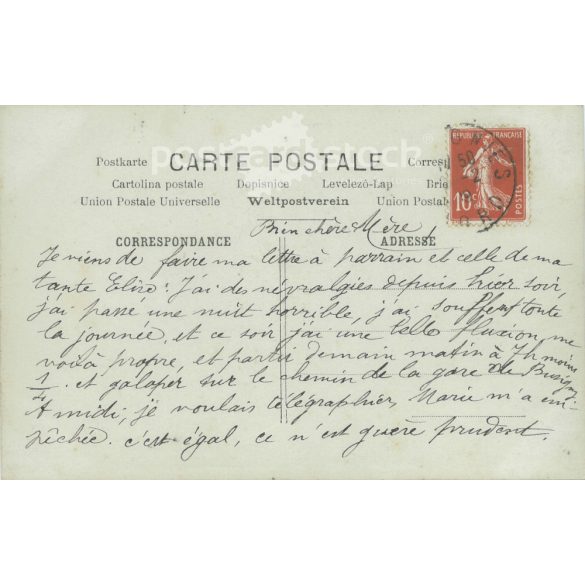 postcardstock
Postkarte CARTE POSTALE Corresp
Cartolina postale Dopisnice Levelező-Lap Brie
Union Postale Universelle Weltpostverein Union Postal
REPUBLIQUE FRANÇAISE
10
POSTES
Bien chère Mère,
CORRESPONDANCE ADRESSE
Je viens de faire ma lettre à parrain et celle de ma
tante Elise: J'ai des névralgies depuis hier soir,
j'ai passé une nuit horrible, j'ai souffert toute
la journée, et ce soir j'ai une telle fluxion, me
voilà propre, et partir demain matin à 7h moins
1/4 et galoper sur le chemin de la gare de Busigny
A midi, je voulais télégraphier, Marie m'a em-
pêchée. c'est égal, ce n'est guère prudent.